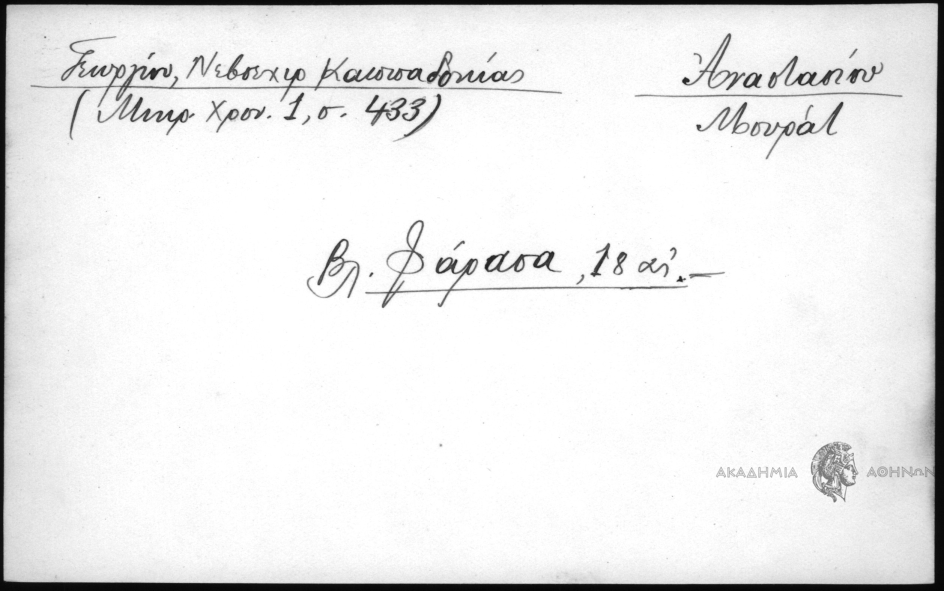 Γεωργίου, Νεβσεχιρ Καππαδοκίας
Ἀναστασίου
(Μικρ. Χρον. 1, σ. 433)
Μουράτ
Βλ. Φάρασα, 18 αἰ.—
ΑΚΑΔΗΜΙΑ ΑΘΗΝΩΝ